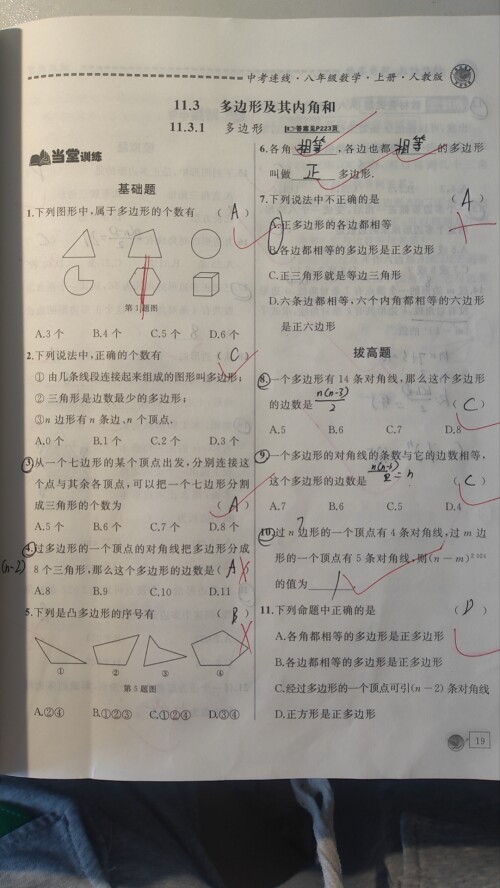 中考连线·八年级数学·上册·人教版
11.3 多边形及其内角和
11.3.1 多边形 答案见P223页
当堂训练
基础题
1.下列图形中,属于多边形的个数有 ( A )
第1题图
A.3个 B.4个 C.5个 D.6个
2.下列说法中,正确的个数有 ( C )
①由几条线段连接起来组成的图形叫多边形;
②三角形是边数最少的多边形;
③n边形有n条边、n个顶点.
A.0个 B.1个 C.2个 D.3个
3.从一个七边形的某个顶点出发,分别连接这
个点与其余各顶点,可以把一个七边形分割
成三角形的个数为 ( A )
A.5个 B.6个 C.7个 D.8个
4.过多边形的一个顶点的对角线把多边形分成
(n-2) 8个三角形,那么这个多边形的边数是( A )
A.8 B.9 C.10 D.11
5.下列是凸多边形的序号有 ( B )
① ② ③ ④
第5题图
A.②④ B.①②③ C.①②④ D.③④
6.各角 相等 ,各边也都 相等 的多边形
叫做 正 多边形.
7.下列说法中不正确的是 ( A )
A.正多边形的各边都相等
B.各边都相等的多边形是正多边形
C.正三角形就是等边三角形
D.六条边都相等,六个内角都相等的六边形
是正六边形
拔高题
8.一个多边形有14条对角线,那么这个多边形
的边数是 n(n-3)/2 ( C )
A.5 B.6 C.7 D.8
9.一个多边形的对角线的条数与它的边数相等,
这个多边形的边数是 ( C )
A.7 B.6 C.5 D.4
10.过n边形的一个顶点有4条对角线,过m边
形的一个顶点有5条对角线,则(n-m)
的值为 1 .
11.下列命题中正确的是 ( D )
A.各角都相等的多边形是正多边形
B.各边都相等的多边形是正多边形
C.经过多边形的一个顶点可引(n-2)条对角线
D.正方形是正多边形
19